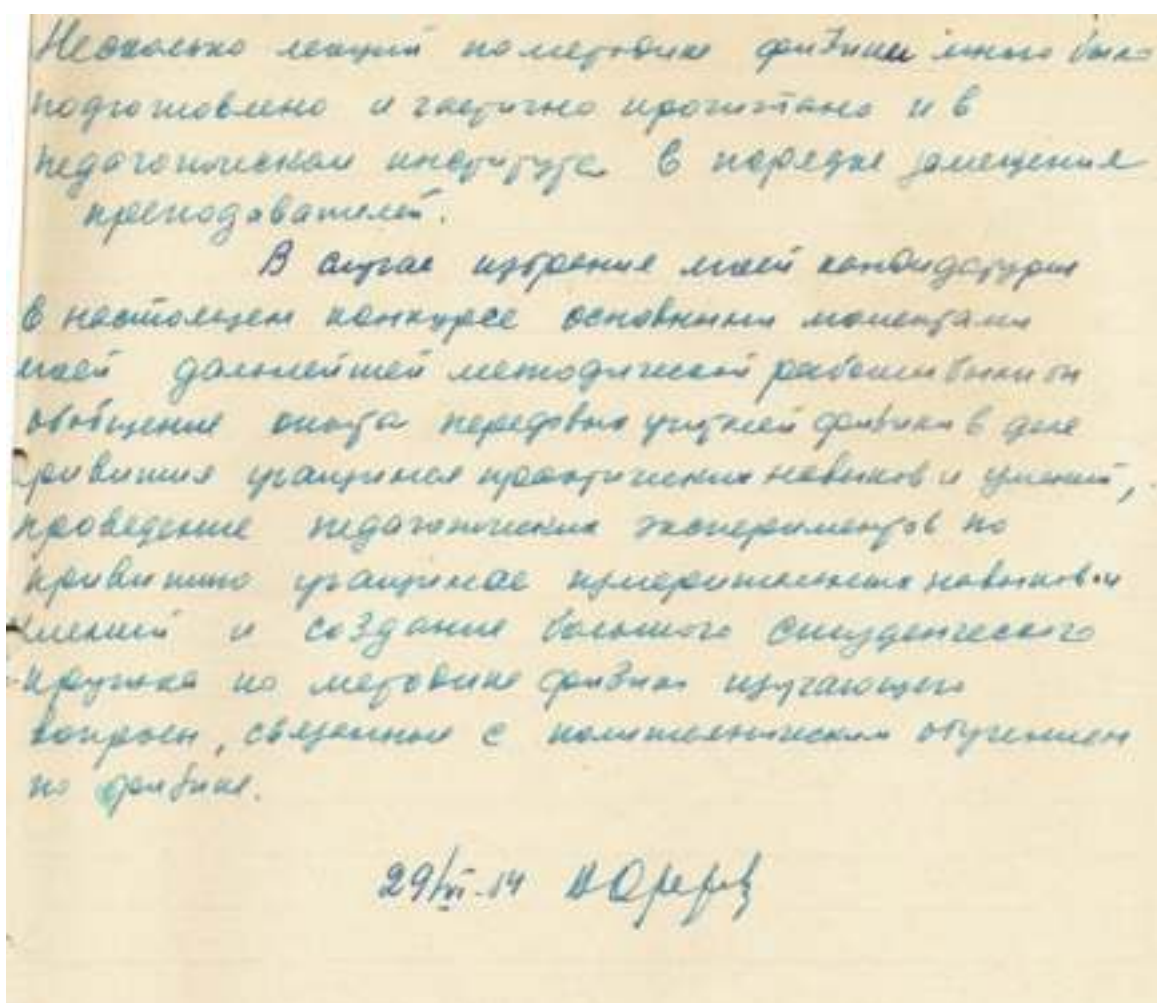 Несколько лекций по методике физики мною было
подготовлено и частично прочитано и в
педагогическом институте в порядке замещения
преподавателей.
В случае избрания моей кандидатуры
в настоящем конкурсе основными моментами
моей дальнейшей методической работы были бы
обобщение опыта передовых учителей физики в деле
привития учащимся практических навыков и умений,
проведение педагогических экспериментов по
привитию учащимся измерительных навыков и
умений и создание большого студенческого
кружка по методике физики изучающего
вопросы, связанные с политехническим обучением
по физике.
29/VI-54